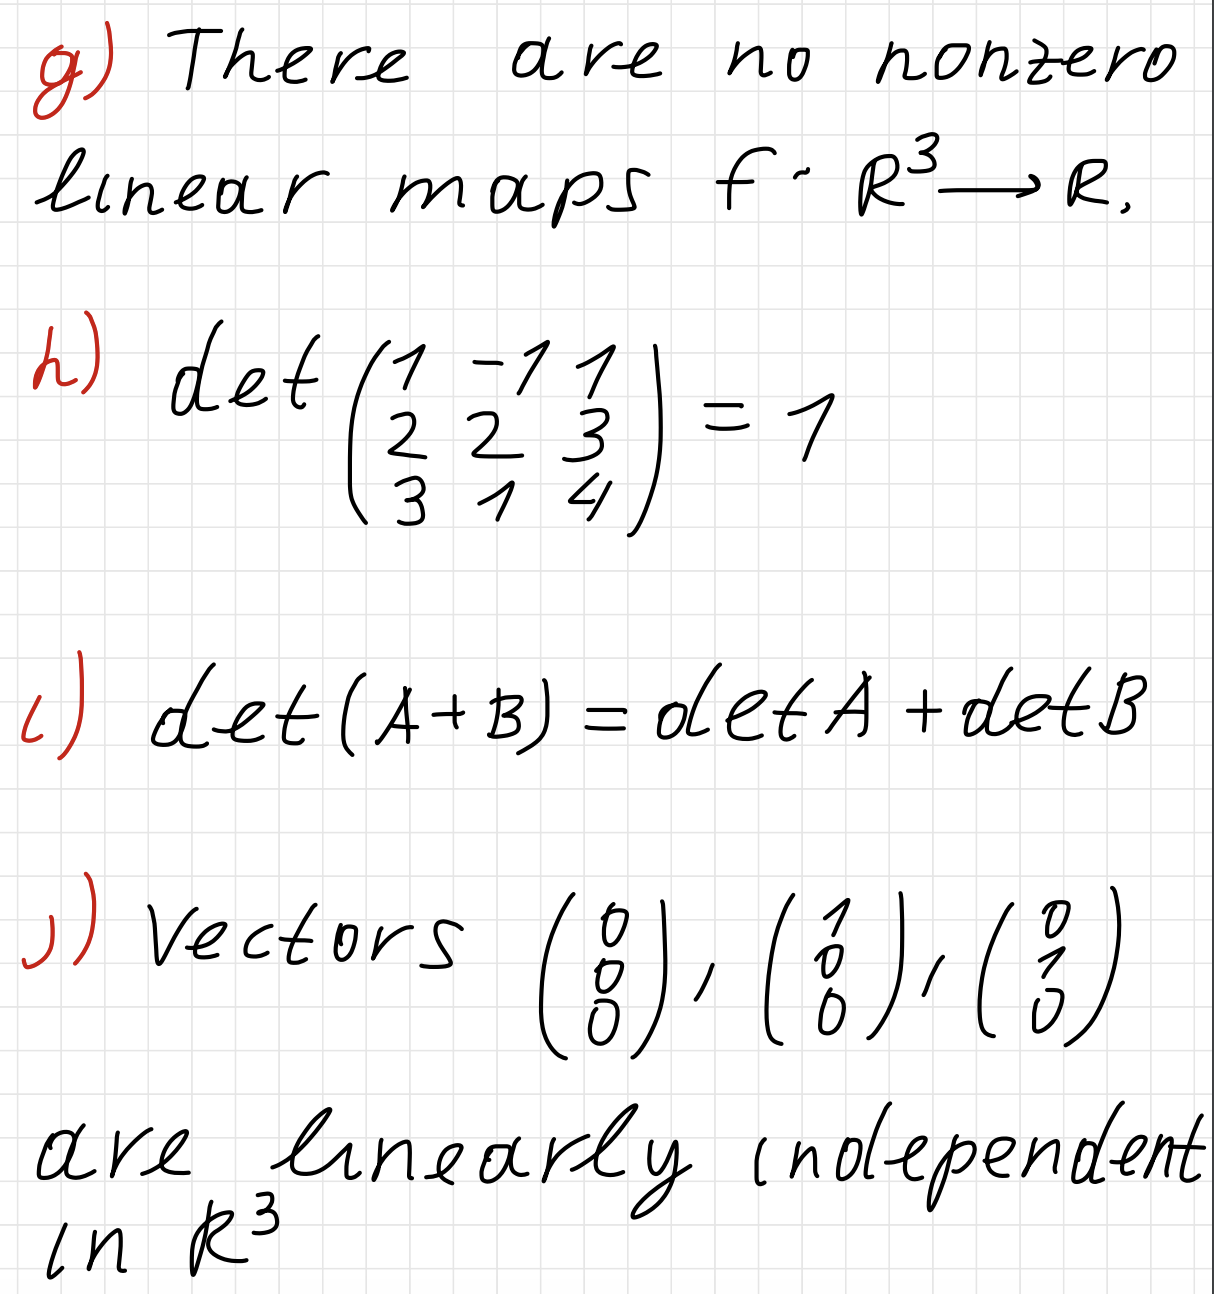 g) There are no nonzero
linear maps f: R³ → R.
h) det (1 -1 1
2 2 3
3 1 4) = 1
i) det(A+B) = det A + det B
j) Vectors (0 0 0), (1 0 0), (0 1 0)
are linearly independent
in R³